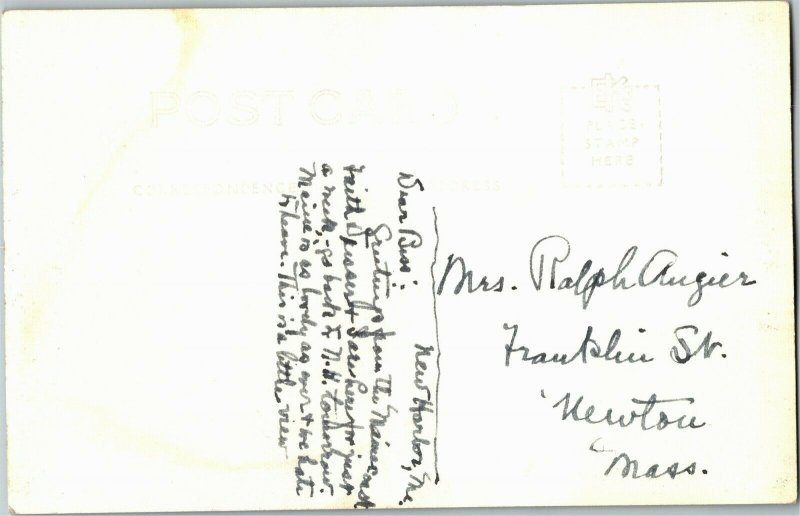 POST CARD
CORRESPONDENCE
ADDRESS
PLACE
STAMP
HERE
New Harbor, Me.
Dear Buss:
Greetings from the Maine coast
Faith & I are here for just
a week, - go back to N.H. tomorrow.
Maine is as lovely as ever & we hate
to leave. This is a little view
Mrs. Ralph Angier
Franklin St.
Newton
Mass.